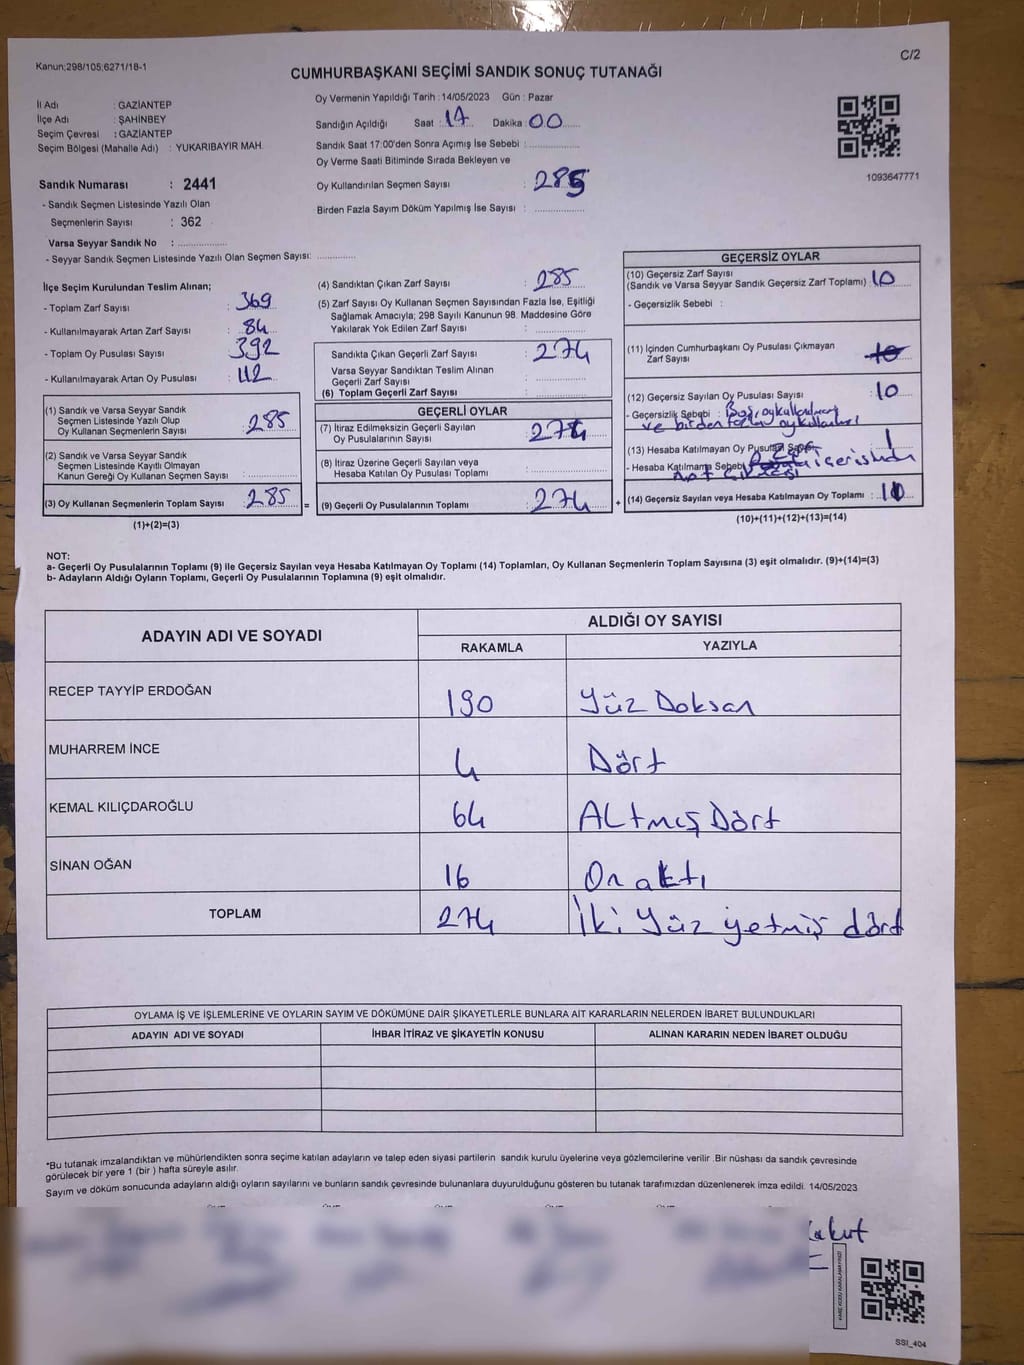 Kanun;298/105;6271/18-1
C/2
CUMHURBAŞKANI SEÇİMİ SANDIK SONUÇ TUTANAĞI
İl Adı : GAZİANTEP
İlçe Adı : ŞAHİNBEY
Seçim Çevresi : GAZİANTEP
Seçim Bölgesi (Mahalle Adı) : YUKARIBAYIR MAH.
Sandık Numarası : 2441
- Sandık Seçmen Listesinde Yazılı Olan
Seçmenlerin Sayısı : 362
Varsa Seyyar Sandık No :
- Seyyar Sandık Seçmen Listesinde Yazılı Olan Seçmen Sayısı:
Oy Vermenin Yapıldığı Tarih : 14/05/2023 Gün : Pazar
Sandığın Açıldığı Saat : 17 Dakika : 00
Sandık Saat 17:00'den Sonra Açımış İse Sebebi :
Oy Verme Saati Bitiminde Sırada Bekleyen ve
Oy Kullandırılan Seçmen Sayısı : 285
Birden Fazla Sayım Döküm Yapılmış İse Sayısı :
1093647771
İlçe Seçim Kurulundan Teslim Alınan;
- Toplam Zarf Sayısı : 369
- Kullanılmayarak Artan Zarf Sayısı : 84
- Toplam Oy Pusulası Sayısı : 392
- Kullanılmayarak Artan Oy Pusulası : 112
(1) Sandık ve Varsa Seyyar Sandık
Seçmen Listesinde Yazılı Olup
Oy Kullanan Seçmenlerin Sayısı : 285
(2) Sandık ve Varsa Seyyar Sandık
Seçmen Listesinde Kayıtlı Olmayan
Kanun Gereği Oy Kullanan Seçmen Sayısı :
(3) Oy Kullanan Seçmenlerin Toplam Sayısı : 285
(1)+(2)=(3)
(4) Sandıktan Çıkan Zarf Sayısı : 285
(5) Zarf Sayısı Oy Kullanan Seçmen Sayısından Fazla İse, Eşitliği
Sağlamak Amacıyla; 298 Sayılı Kanunun 98. Maddesine Göre
Yakılarak Yok Edilen Zarf Sayısı :
Sandıkta Çıkan Geçerli Zarf Sayısı : 274
Varsa Seyyar Sandıktan Teslim Alınan
Geçerli Zarf Sayısı :
(6) Toplam Geçerli Zarf Sayısı :
GEÇERLİ OYLAR
(7) İtiraz Edilmeksizin Geçerli Sayılan
Oy Pusulalarının Sayısı : 274
(8) İtiraz Üzerine Geçerli Sayılan veya
Hesaba Katılan Oy Pusulası Toplamı :
= (9) Geçerli Oy Pusulalarının Toplamı : 274 +
GEÇERSİZ OYLAR
(10) Geçersiz Zarf Sayısı
(Sandık ve Varsa Seyyar Sandık Geçersiz Zarf Toplamı) : 10
- Geçersizlik Sebebi :
(11) İçinden Cumhurbaşkanı Oy Pusulası Çıkmayan
Zarf Sayısı : 10
(12) Geçersiz Sayılan Oy Pusulası Sayısı : 10
- Geçersizlik Sebebi : Boş oy kullanılması
ve birden fazla oy kullanılması
(13) Hesaba Katılmayan Oy Pusulası Sayısı 1
- Hesaba Katılmama Sebebi içerisinden
(14) Geçersiz Sayılan veya Hesaba Katılmayan Oy Toplamı : 11
(10)+(11)+(12)+(13)=(14)
NOT:
a- Geçerli Oy Pusulalarının Toplamı (9) ile Geçersiz Sayılan veya Hesaba Katılmayan Oy Toplamı (14) Toplamları, Oy Kullanan Seçmenlerin Toplam Sayısına (3) eşit olmalıdır. (9)+(14)=(3)
b- Adayların Aldığı Oyların Toplamı, Geçerli Oy Pusulalarının Toplamına (9) eşit olmalıdır.
ADAYIN ADI VE SOYADI
ALDIĞI OY SAYISI
RAKAMLA YAZIYLA
RECEP TAYYİP ERDOĞAN 190 Yüz Doksan
MUHARREM İNCE 4 Dört
KEMAL KILIÇDAROĞLU 64 Altmış Dört
SİNAN OĞAN 16 On altı
TOPLAM 274 İki Yüz yetmiş dört
OYLAMA İŞ VE İŞLEMLERİNE VE OYLARIN SAYIM VE DÖKÜMÜNE DAİR ŞİKAYETLERLE BUNLARA AİT KARARLARIN NELERDEN İBARET BULUNDUKLARI
ADAYIN ADI VE SOYADI İHBAR İTİRAZ VE ŞİKAYETİN KONUSU ALINAN KARARIN NEDEN İBARET OLDUĞU
*Bu tutanak imzalandıktan ve mühürlendikten sonra seçime katılan adayların ve talep eden siyasi partilerin sandık kurulu üyelerine veya gözlemcilerine verilir .Bir nüshası da sandık çevresinde
görülecek bir yere 1 (bir ) hafta süreyle asılır.
Sayım ve döküm sonucunda adayların aldığı oyların sayılarını ve bunların sandık çevresinde bulunanlara duyurulduğunu gösteren bu tutanak tarafımızdan düzenlenerek imza edildi. 14/05/2023
SSI_404